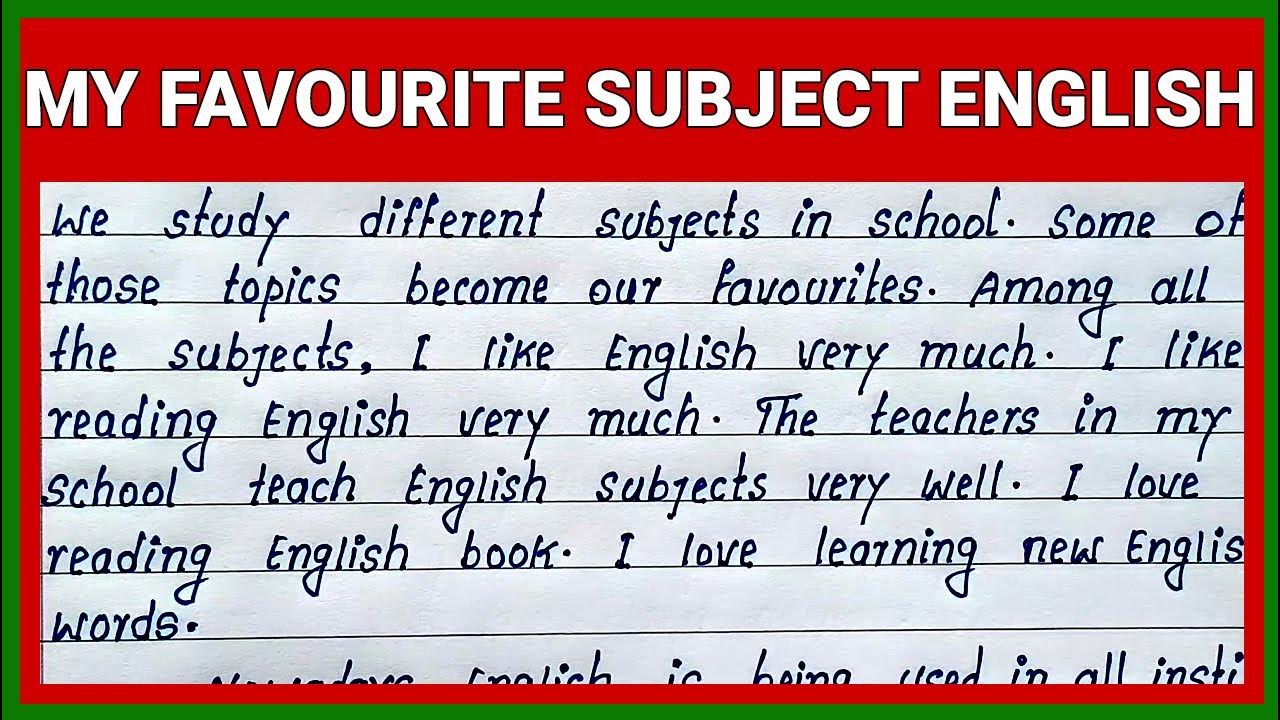 MY FAVOURITE SUBJECT ENGLISH
We study different subjects in school. Some of
those topics become our favourites. Among all
the subjects, I like English very much. I like
reading English very much. The teachers in my
school teach English subjects very well. I love
reading English book. I love learning new Englis
words.
Nowadays English is being used in all insti